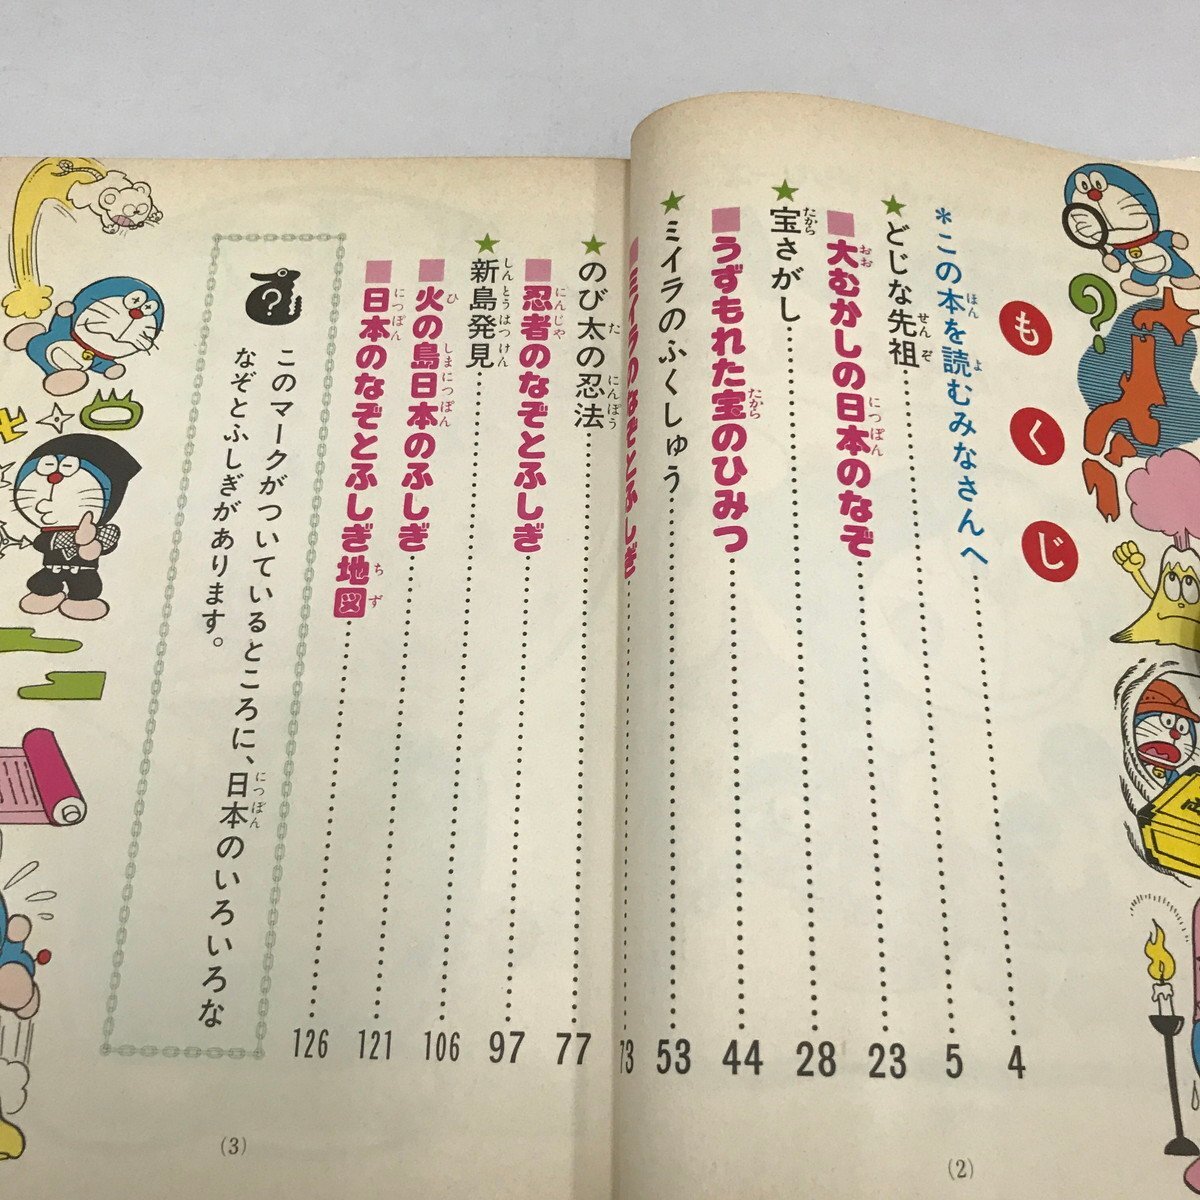 もくじ
*この本を読むみなさんへ……4
★どじな先祖……5
■大むかしの日本のなぞ……23
★宝さがし……28
■うずもれた宝のひみつ……44
★ミイラのふくしゅう……53
■ミイラのなぞとふしぎ……73
(2)
★のび太の忍法……77
■忍者のなぞとふしぎ……97
★新島発見……106
■火の島日本のふしぎ……121
■日本のなぞとふしぎ地図……126
?
このマークがついているところに、日本のいろいろな
なぞとふしぎがあります。
(3)